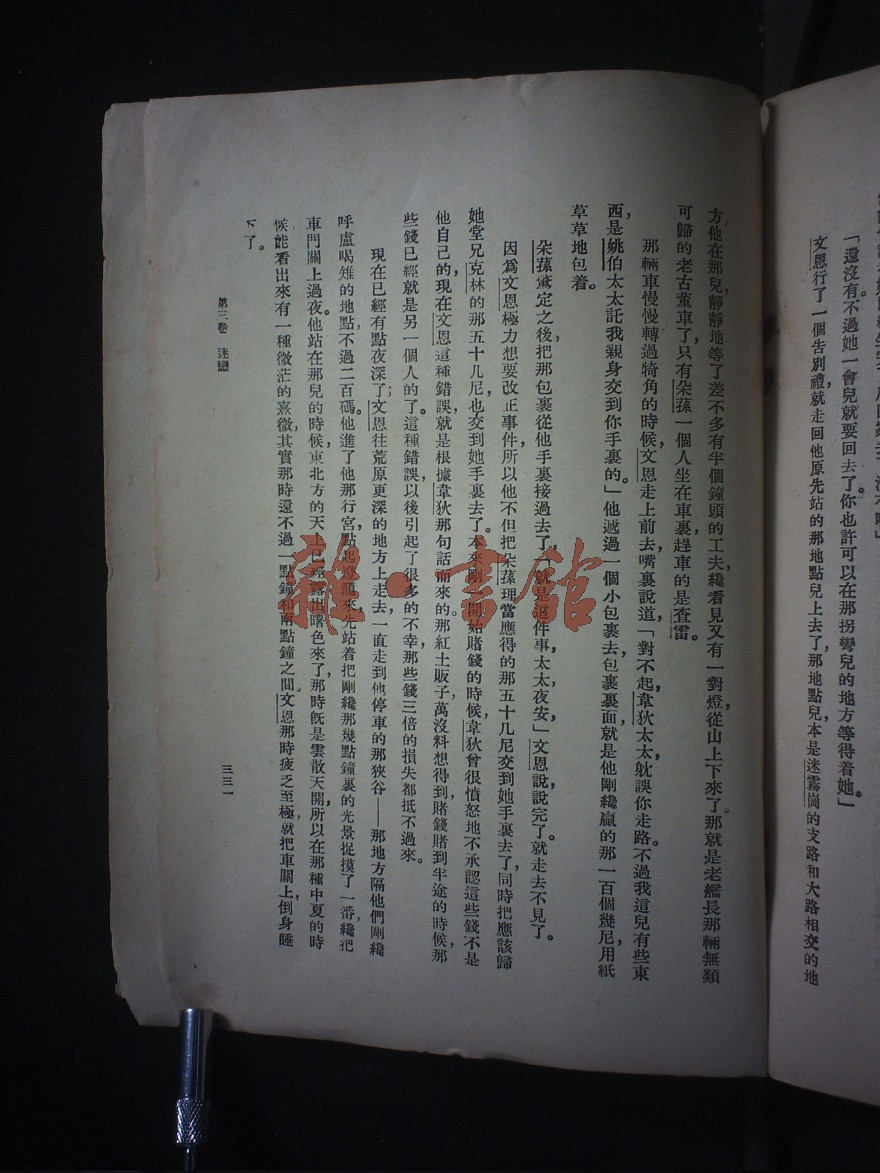 「還沒有不過她一會兒就要回去了。你也許可以在那拐彎兒的地方等得着她。」
文恩行了一個告別禮就走回他原先站的那地點兒上去了，那地點兒本是迷霧崗的支路和大路相交的地
方，他在那兒靜靜地等了差不多有半個鐘頭的工夫，纔看見又有一對燈從山上下來了。那就是老艦長那輛無類
可歸的老古董車了，只有朵蓀一個人坐在車裏，趕車的是查雷。
那輛車慢慢轉過犄角的時候，文恩走上前去，嘴裏說道，「對不起，韋狄太太，躭誤你走路。不過我這兒有些東
西，是姚伯太太託我親身交到你手裏的。」他遞過一個小包裹去，包裹裏面就是他剛纔贏的那一百個幾尼，用紙
草草地包着。
朵蓀驚定之後，把那包裹從他手裏接過去了。「就是這件事，太太，夜安，」文恩說，說完了。就走去不見了。
因爲文恩極力想要改正事件，所以他不但把朵蓀理當應得的那五十几尼交到她手裏去了，同時把應該歸
她堂兄克林的那五十几尼也交到她手裏去了。本來剛一開始賭錢的時候，韋狄曾很憤怒地不承認這些錢不是
他自己的，現在文恩這種錯誤，就是根據韋狄那句話而來的。那紅土販子萬沒料想得到，賭錢賭到半途的時候，那
些錢已經就是另一個人的了。這種錯誤，以後引起了很多的不幸，那些錢三倍的損失都抵不過來。
現在已經有點夜深了；文恩往荒原更深的地方上走去，一直走到他停車的那狹谷——那地方隔他們剛纔
呼盧喝雉的地點不過二百碼。他進了他那行宮，點起燈籠來，先站着把剛纔那幾點鐘裏的光景捉摸了一番，纔把
車門關上過夜。他站在那兒的時候，東北方的天上已經露出曙色來了，那時既是雲散天開，所以在那種中夏的時
候，能看出來有一種微茫的熹微，其實那時還不過一點鐘和兩點鐘之間。文恩那時疲乏至極，就把車關上，倒身睡
下了。
第三卷 迷戀
三三一
雜·書館